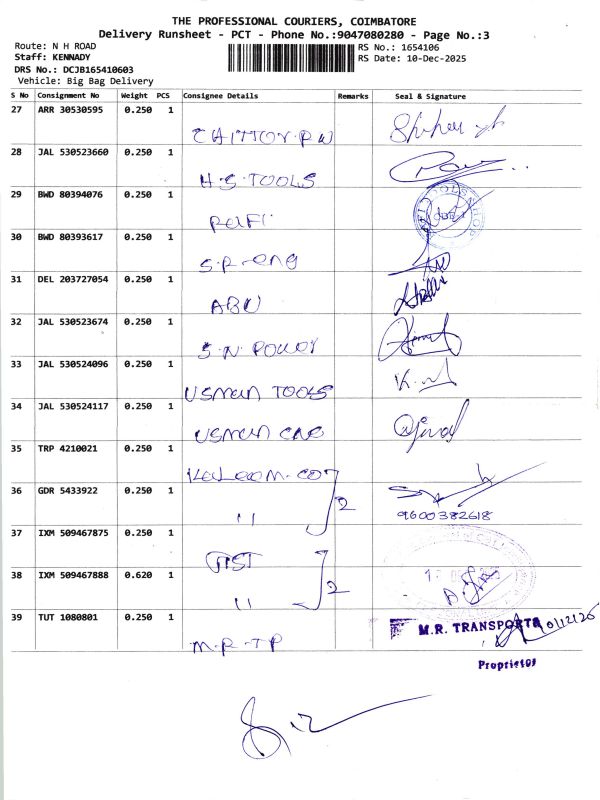 THE PROFESSIONAL COURIERS, COIMBATORE
Delivery Runsheet - PCT - Phone No.:9047080280 - Page No.:3
Route: N H ROAD
RS No.: 1654106
Staff: KENNADY
RS Date: 10-Dec-2025
DRS No.: DCJB165410603
Vehicle: Big Bag Delivery
S No Consignment No Weight PCS Consignee Details Remarks Seal & Signature
27 ARR 30530595 0.250 1
28 JAL 530523660 0.250 1
H.S.TOOLS
29 BWD 80394076 0.250 1
RAFI
30 BWD 80393617 0.250 1
S.R-eng
31 DEL 203727054 0.250 1
ABU
32 JAL 530523674 0.250 1
S.N. POWER
33 JAL 530524096 0.250 1
USMAN TOOLS
34 JAL 530524117 0.250 1
USMAN
35 TRP 4210021 0.250 1
36 GDR 5433922 0.250 1
11 2
9600382618
37 IXM 509467875 0.250 1
38 IXM 509467888 0.620 1
11 2
39 TUT 1080801 0.250 1
M.R. TRANSPORTS
M.R-TP
Proprietor